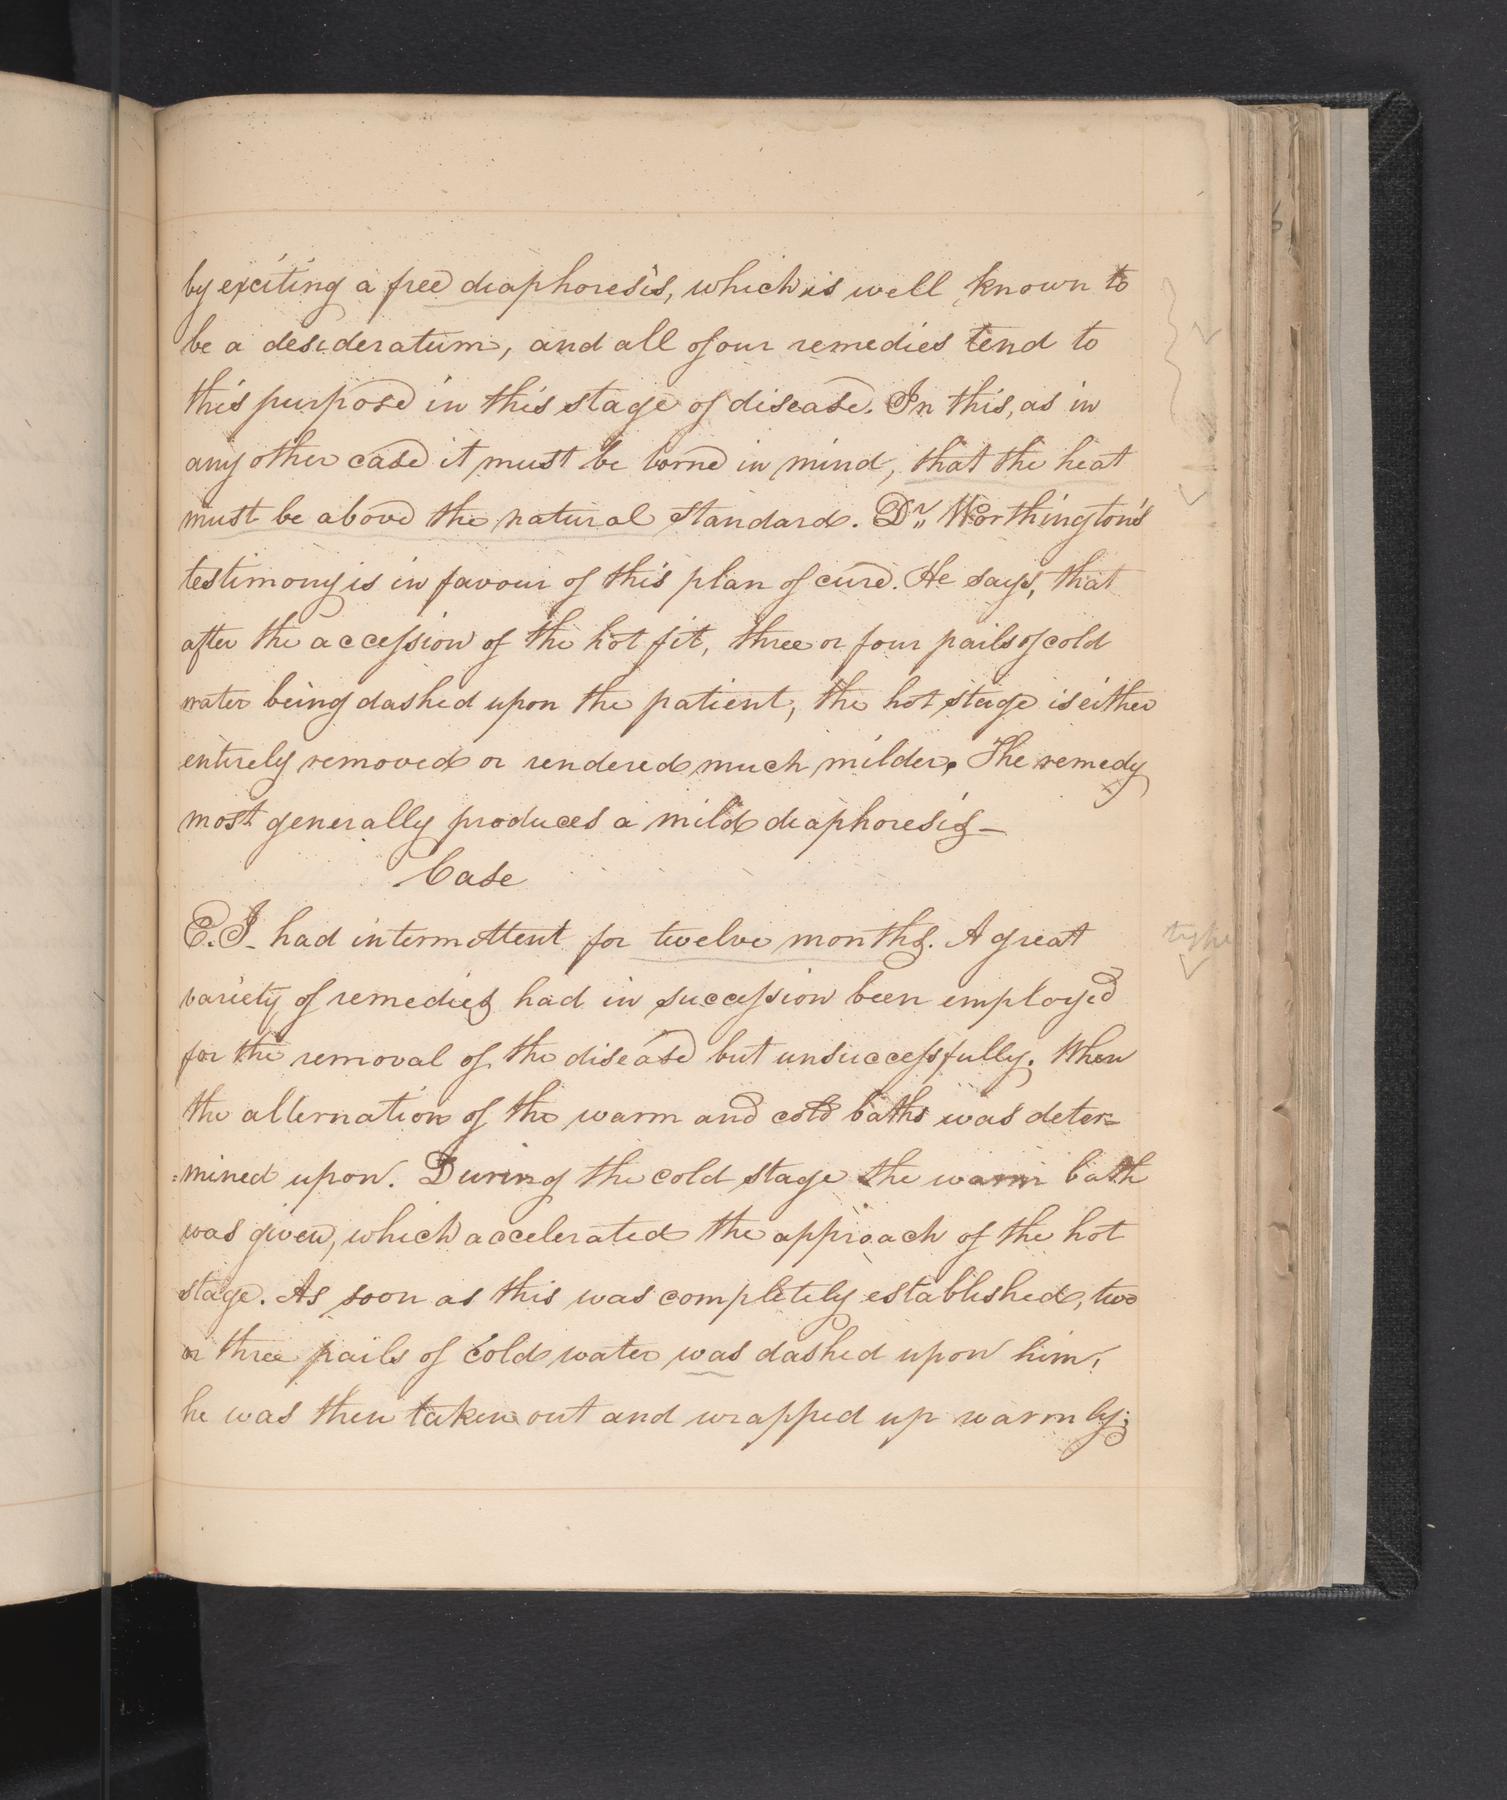 by exciting a free diaphoresis, which is well known to
be a desideratum, and all of our remedies tend to
this purpose in this stage of disease. In this, as in
any other case it must be borne in mind, that the heat
must be above the natural standard. Dr. Worthington's
testimony is in favour of this plan of cure. He says, that
after the accession of the hot fit, three or four pails of cold
water being dashed upon the patient, the hot stage is either
entirely removed or rendered much milder. The remedy
most generally produces a mild diaphoresis—
Case
E. J. had intermittent for twelve months. A great
variety of remedies had in succession been employed
for the removal of the disease but unsuccessfully. When
the alternation of the warm and cold baths was deter=
=mined upon. During the cold stage the warm bath
was given, which accelerated the approach of the hot
stage. As soon as this was completely established, two
or three pails of cold water was dashed upon him,
he was then taken out and wrapped up warmly;